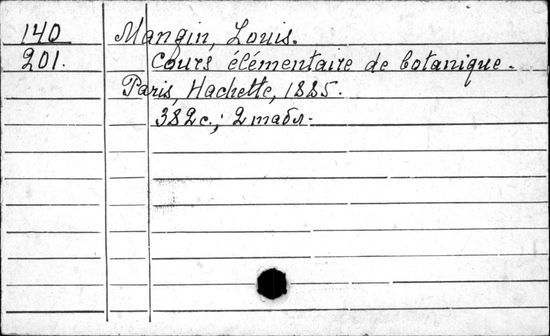 140 Mangin, Louis.
201. Cours élémentaire de botanique.
Paris, Hachette, 1885.
382 с.; 2 табл.